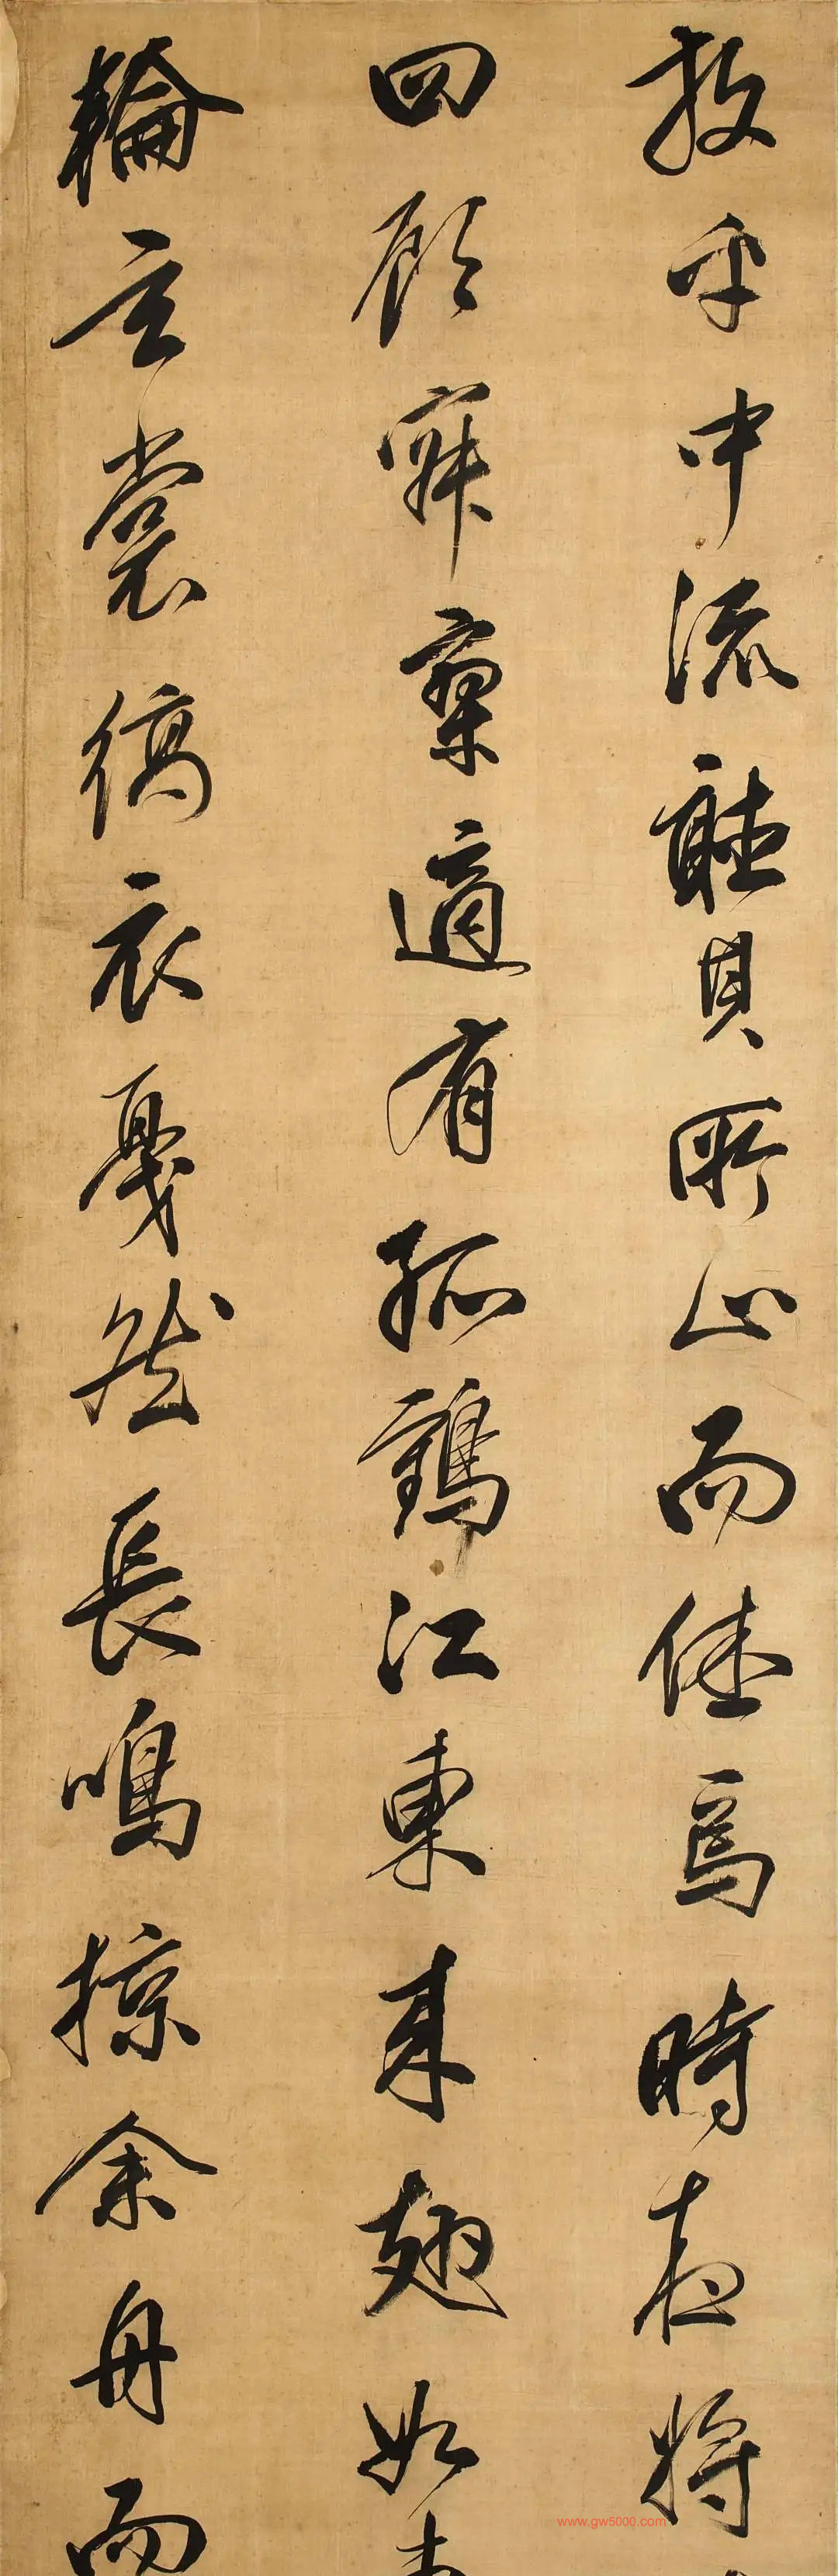 放乎中流聽其所止而休焉時夜將
四顧寂寥適有孤鶴江東來翅如
輪玄裳縞衣戛然長鳴掠余舟而
www.gw5000.com